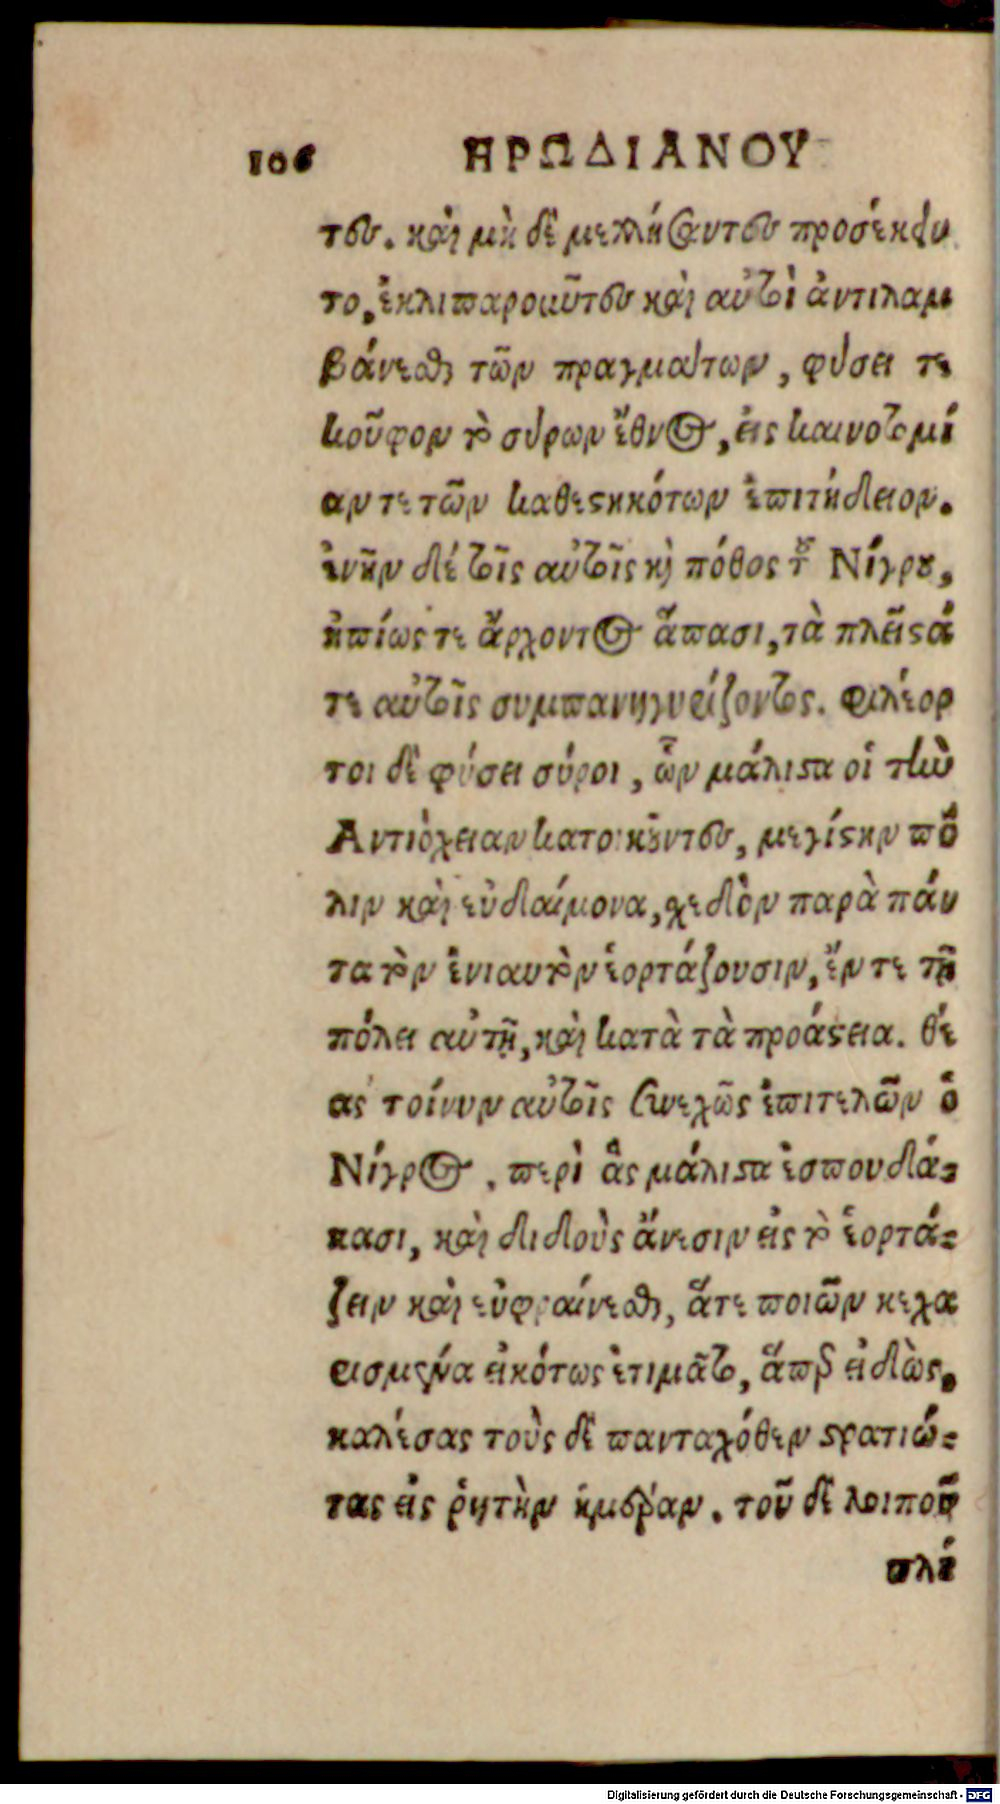 106 ΗΡΩΔΙΑΝΟΥ
τες. καὶ μὴ δὲ μελλήσαντες προσέκειν
το, ἐκλιπαροῦντες καὶ αὐτοὶ ἀντιλαμ
βάνεσθαι τῶν πραγμάτων, φύσει τε
κοῦφον τὸ σύρων ἔθνος, εἰς καινοτομί
αν τε τῶν καθεστηκότων ἐπιτήδειον.
ἐνῆν δέ τοῖς αὐτοῖς καὶ πόθος τοῦ Νίγρου,
ἠπίως τε ἄρχοντος ἅπασι, τὰ πλεῖστά
τε αὐτοῖς συμπανηγυρίζοντος. φιλέορ
τοι δὲ φύσει σύροι, ὧν μάλιστα οἱ τὴν
Αντιόχειαν κατοικοῦντες, μεγίστην πό
λιν καὶ εὐδαίμονα, σχεδὸν παρὰ πάν
τα τὸν ἐνιαυτὸν ἑορτάζουσιν, ἔν τε τῇ
πόλει αὐτῇ, καὶ κατὰ τὰ προάστεια. θέ
ας τοίνυν αὐτοῖς συνεχῶς ἐπιτελῶν ὁ
Νίγρος. περὶ ἃς μάλιστα ἐσπουδά-
κασι, καὶ διδοὺς ἄνεσιν εἰς τὸ ἑορτά-
ζειν καὶ εὐφραίνεσθαι, ἅτε ποιῶν κεχα
ρισμένα εἰκότως ἐτιμᾶτο, ἅπερ εἰδὼς,
καλέσας τοὺς δὲ πανταχόθεν στρατιώ-
τας εἰς ῥητὴν ἡμέραν. τοῦ δὲ λοιποῦ
πλή
Digitalisierung gefördert durch die Deutsche Forschungsgemeinschaft - DFG